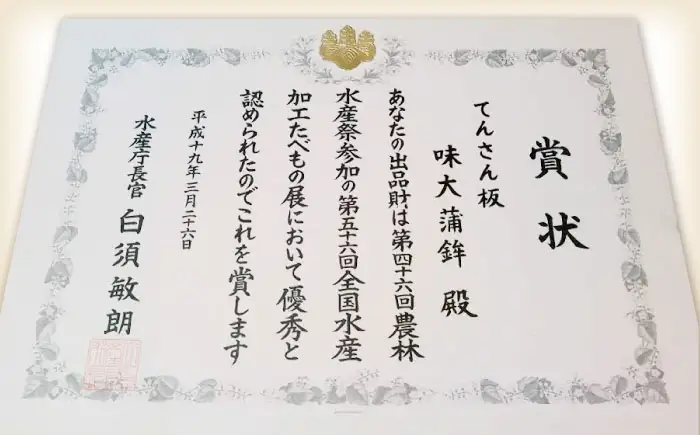 賞状
てんさん板
味大蒲鉾 殿
あなたの出品財は第四十六回農林
水産祭参加の第五十六回全国水産
加工たべもの展において優秀と
認められたのでこれを賞します
平成十九年三月二十六日
水産庁長官 白須敏朗